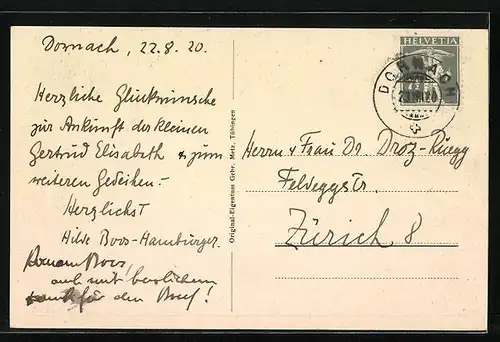 Dornach, 22.8.20.
Herzliche Glückwünsche
zur Ankunft der kleinen
Gertrud Elisabeth & zum
weiteren Gedeihen. –
Herzlichst
Hilde Boos-Hamburger.
Roman Boos,
auch mit herzlichem
Dank für den Brief!
Original-Eigentum Gebr. Metz, Tübingen
HELVETIA
7½
DORNACH
Herrn & Frau Dr Droz-Rüegg
Feldeggstr.
Zürich 8